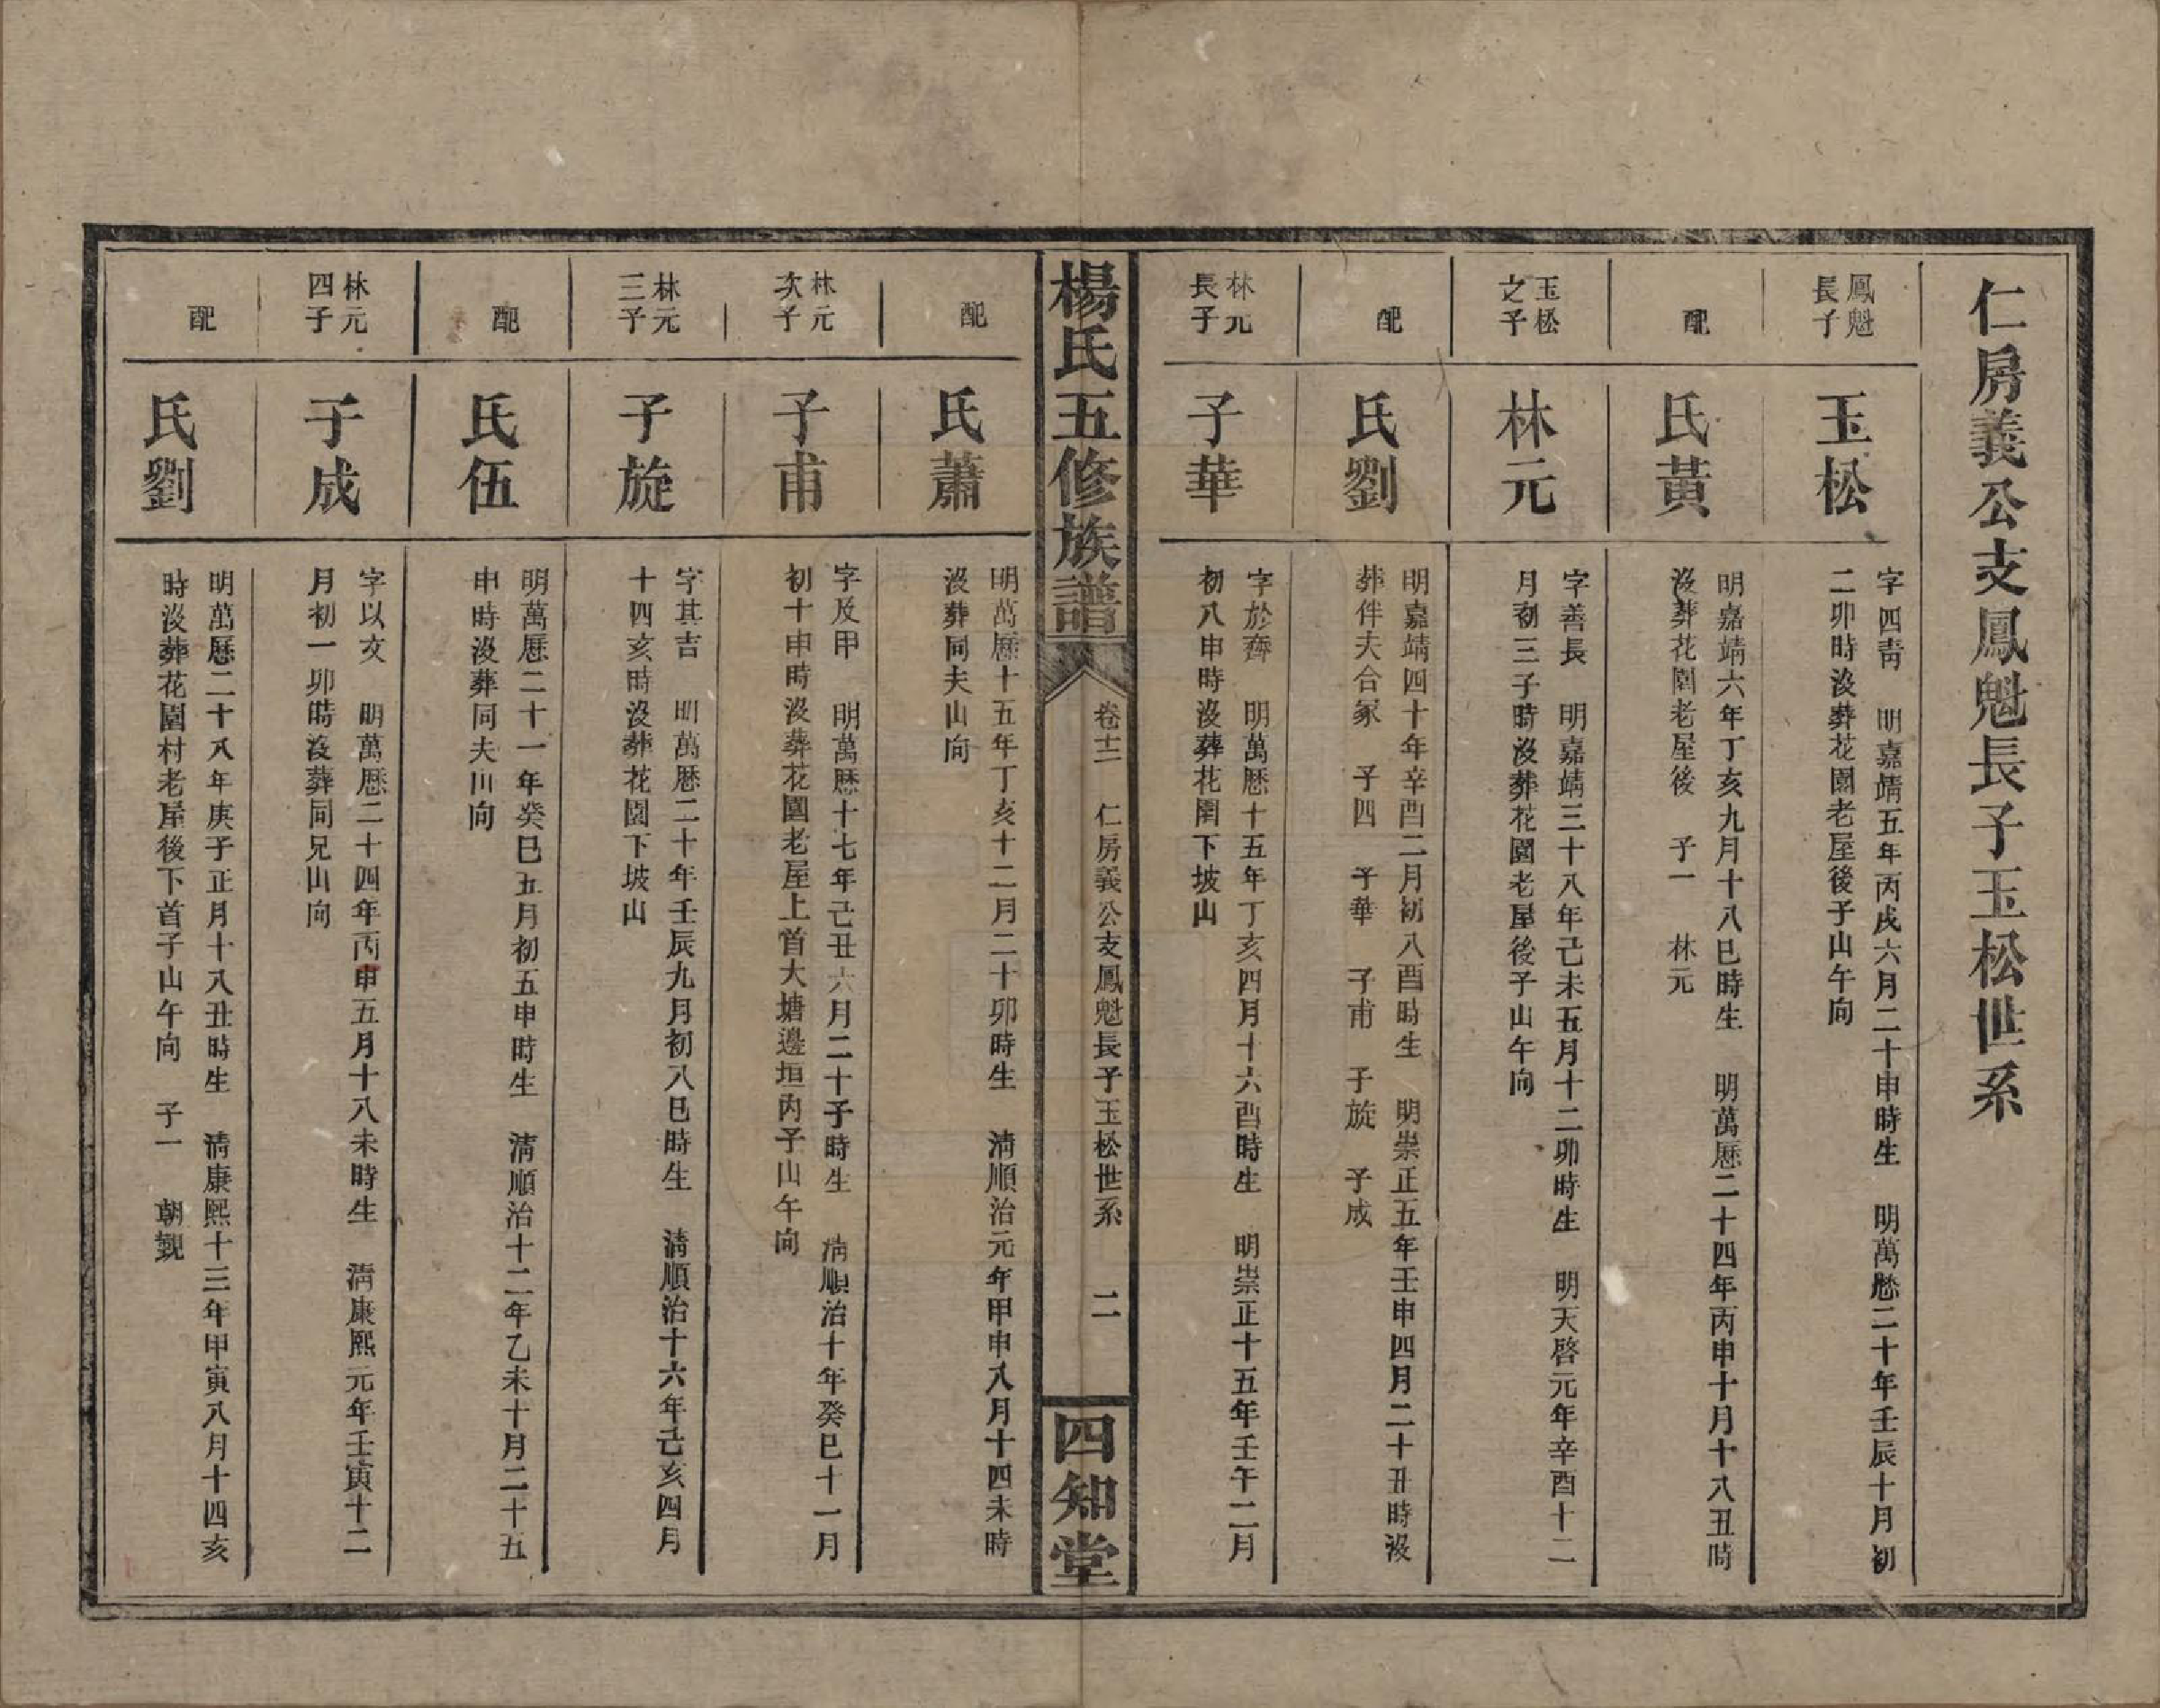 仁房義公支鳳魁長子玉松世系
鳳魁
長子
玉松
字四靑　明嘉靖五年丙戌六月二十申時生　明萬歷二十年壬辰十月初
二卯時沒葬花園老屋後子山午向
配
氏黃
明嘉靖六年丁亥九月十八巳時生　明萬歷二十四年丙申十月十八丑時
沒葬花園老屋後　子一　林元
玉松
之子
林元
字善長　明嘉靖三十八年己未五月十二卯時生　明天啓元年辛酉十二
月初三子時沒葬花園老屋後子山午向
配
氏劉
明嘉靖四十年辛酉二月初八酉時生　明崇正五年壬申四月二十丑時沒
葬伴夫合冢　子四　子華　子甫　子旋　子成
林元
長子
子華
字於齊　明萬歷十五年丁亥四月十六酉時生　明崇正十五年壬午二月
初八申時沒葬花園下坡山
楊氏五修族譜
卷十二　仁房義公支鳳魁長子玉松世系　二
四知堂
配
氏蕭
明萬歷十五年丁亥十二月二十卯時生　淸順治元年甲申八月十四未時
沒葬同夫山向
林元
次子
子甫
字及甲　明萬歷十七年己丑六月二十子時生　淸順治十年癸巳十一月
初十申時沒葬花園老屋上首大塘邊垣丙子山午向
林元
三子
子旋
字其吉　明萬歷二十年壬辰九月初八巳時生　淸順治十六年己亥四月
十四亥時沒葬花園下坡山
配
氏伍
明萬歷二十一年癸巳五月初五申時生　淸順治十二年乙未十月二十五
申時沒葬同夫山向
林元
四子
子成
字以文　明萬歷二十四年丙申五月十八未時生　淸康熙元年壬寅十二
月初一卯時沒葬同兄山向
配
氏劉
明萬歷二十八年庚子正月十八丑時生　淸康熙十三年甲寅八月十四亥
時沒葬花園村老屋後下首子山午向　子一　朝覲